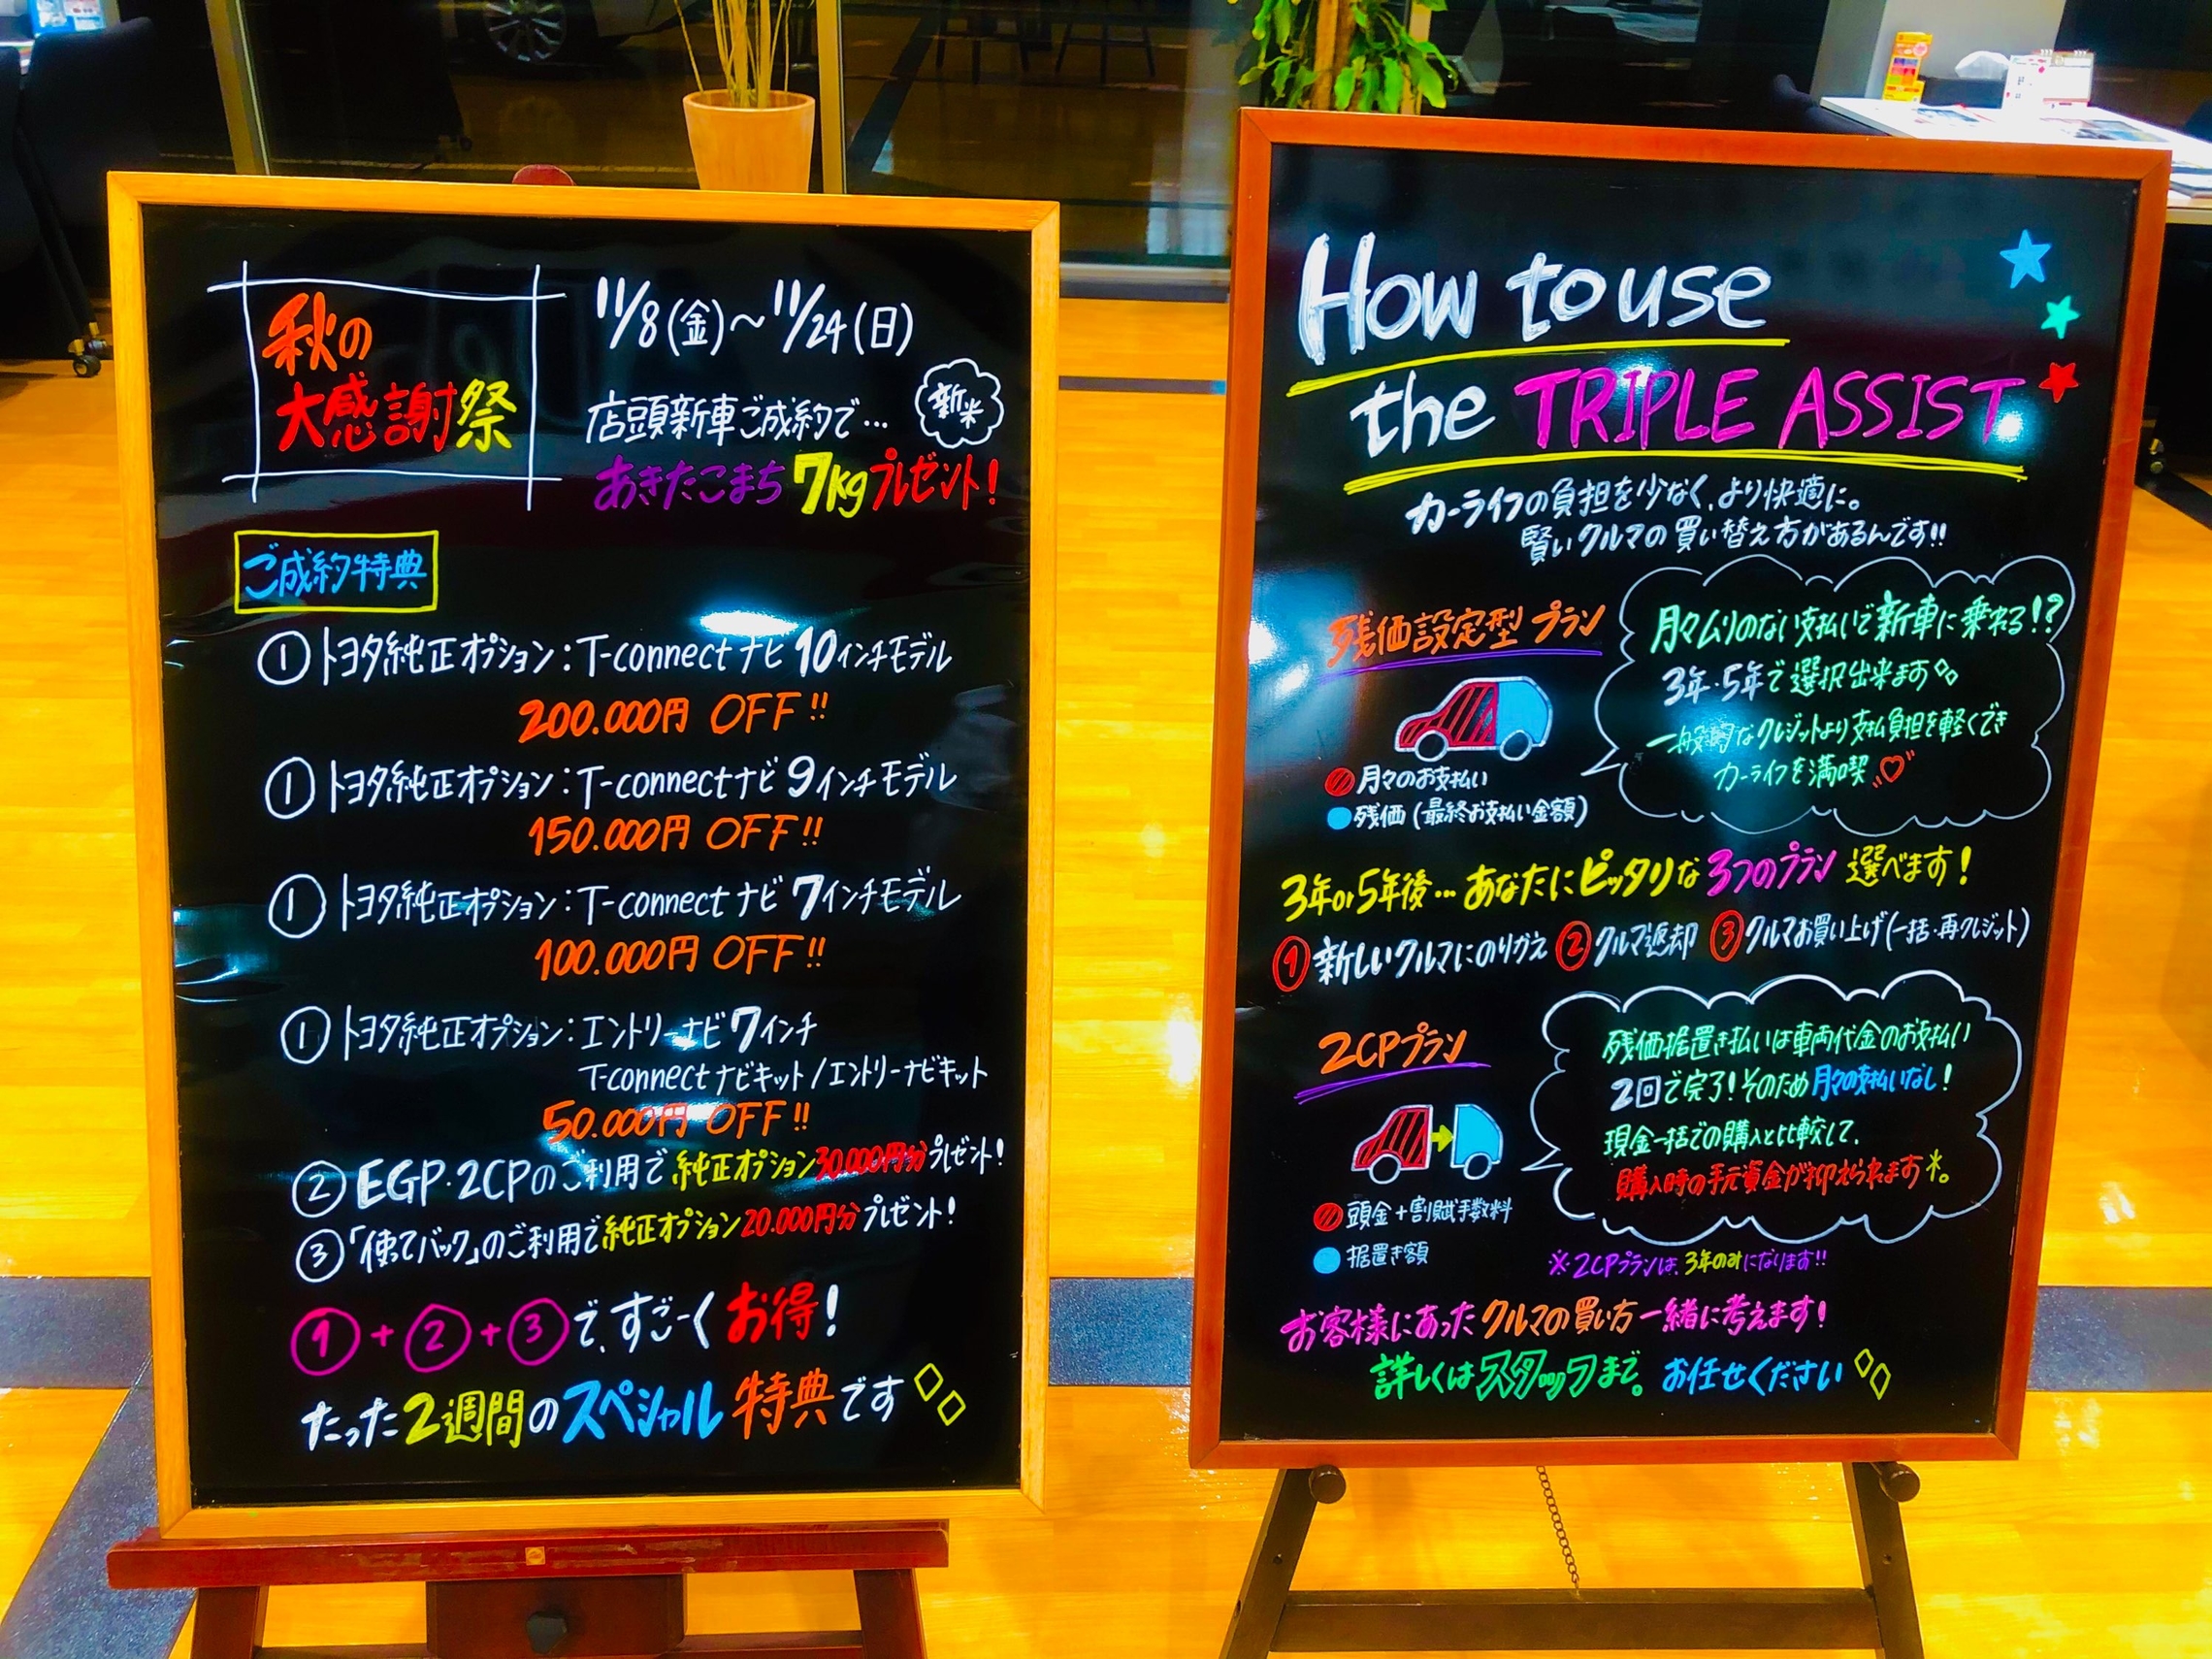 秋の
大感謝祭
11/8(金)～11/24(日)
店頭新車ご成約で…
新米
あきたこまち7kgプレゼント!
ご成約特典
①トヨタ純正オプション:T-connectナビ10インチモデル
200.000円 OFF!!
①トヨタ純正オプション:T-connectナビ9インチモデル
150.000円 OFF!!
①トヨタ純正オプション:T-connectナビ7インチモデル
100.000円 OFF!!
①トヨタ純正オプション:エントリーナビ7インチ
T-connectナビキット/エントリーナビキット
50.000円 OFF!!
②EGP・2CPのご利用で純正オプション30.000円分プレゼント!
③「使ってバック」のご利用で純正オプション20.000円分プレゼント!
①+②+③で、すご〜くお得!
たった2週間のスペシャル特典です
How to use
the TRIPLE ASSIST
カーライフの負担を少なく、より快適に。
賢いクルマの買い替え方があるんです!!
残価設定型プラン
月々のお支払い
残価(最終お支払い金額)
月々ムリのない支払いで新車に乗れる!?
3年・5年で選択出来ます
一般的なクレジットより支払負担を軽くでき
カーライフを満喫
3年or5年後…あなたにピッタリな3つのプラン選べます!
①新しいクルマにのりかえ ②クルマ返却 ③クルマお買い上げ(一括・再クレジット)
2CPプラン
頭金+割賦手数料
据置き額
残価据置き払いは車両代金のお支払い
2回で完了!そのため月々の支払いなし!
現金一括での購入と比較して、
購入時の手元資金が抑えられます。
※2CPプランは、3年のみになります!!
お客様にあったクルマの買い方一緒に考えます!
詳しくはスタッフまで。お任せください